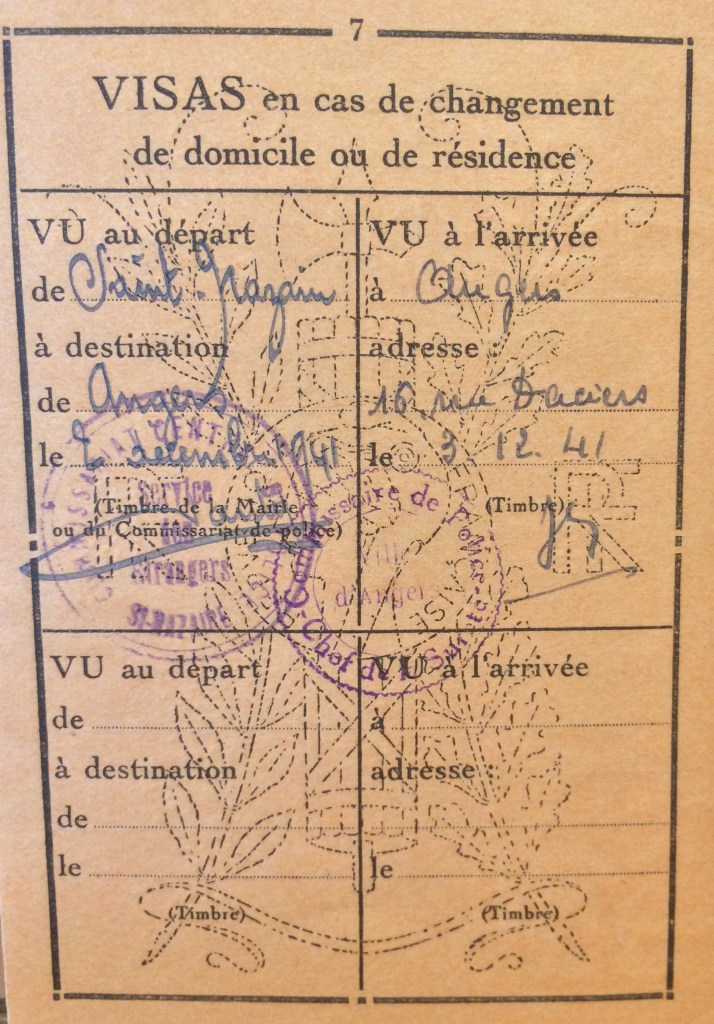 7
VISAS en cas de changement
de domicile ou de résidence
VU au départ
de Saint-Nazaire
à destination
de Angers
le 2 décembre 1941
(Timbre de la Mairie
ou du Commissariat de police)
COMMISSARIAT CENTRAL
Service
des
Étrangers
ST-NAZAIRE
VU à l'arrivée
à Angers
adresse :
16 rue Daciers
le 3.12.41
(Timbre)
Commissaire de Police
Chef de la Sûreté
Ville
d'Angers
RF
VU au départ
de
à destination
de
le
(Timbre)
VU à l'arrivée
à
adresse :
le
(Timbre)